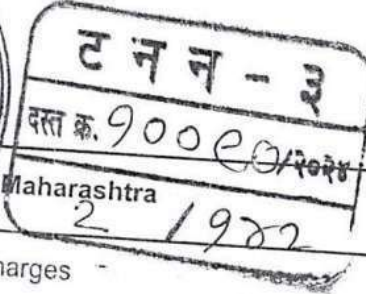 ट न न - ३
दस्त क्र. १००९०/२०२४
Maharashtra
२ /
harges -